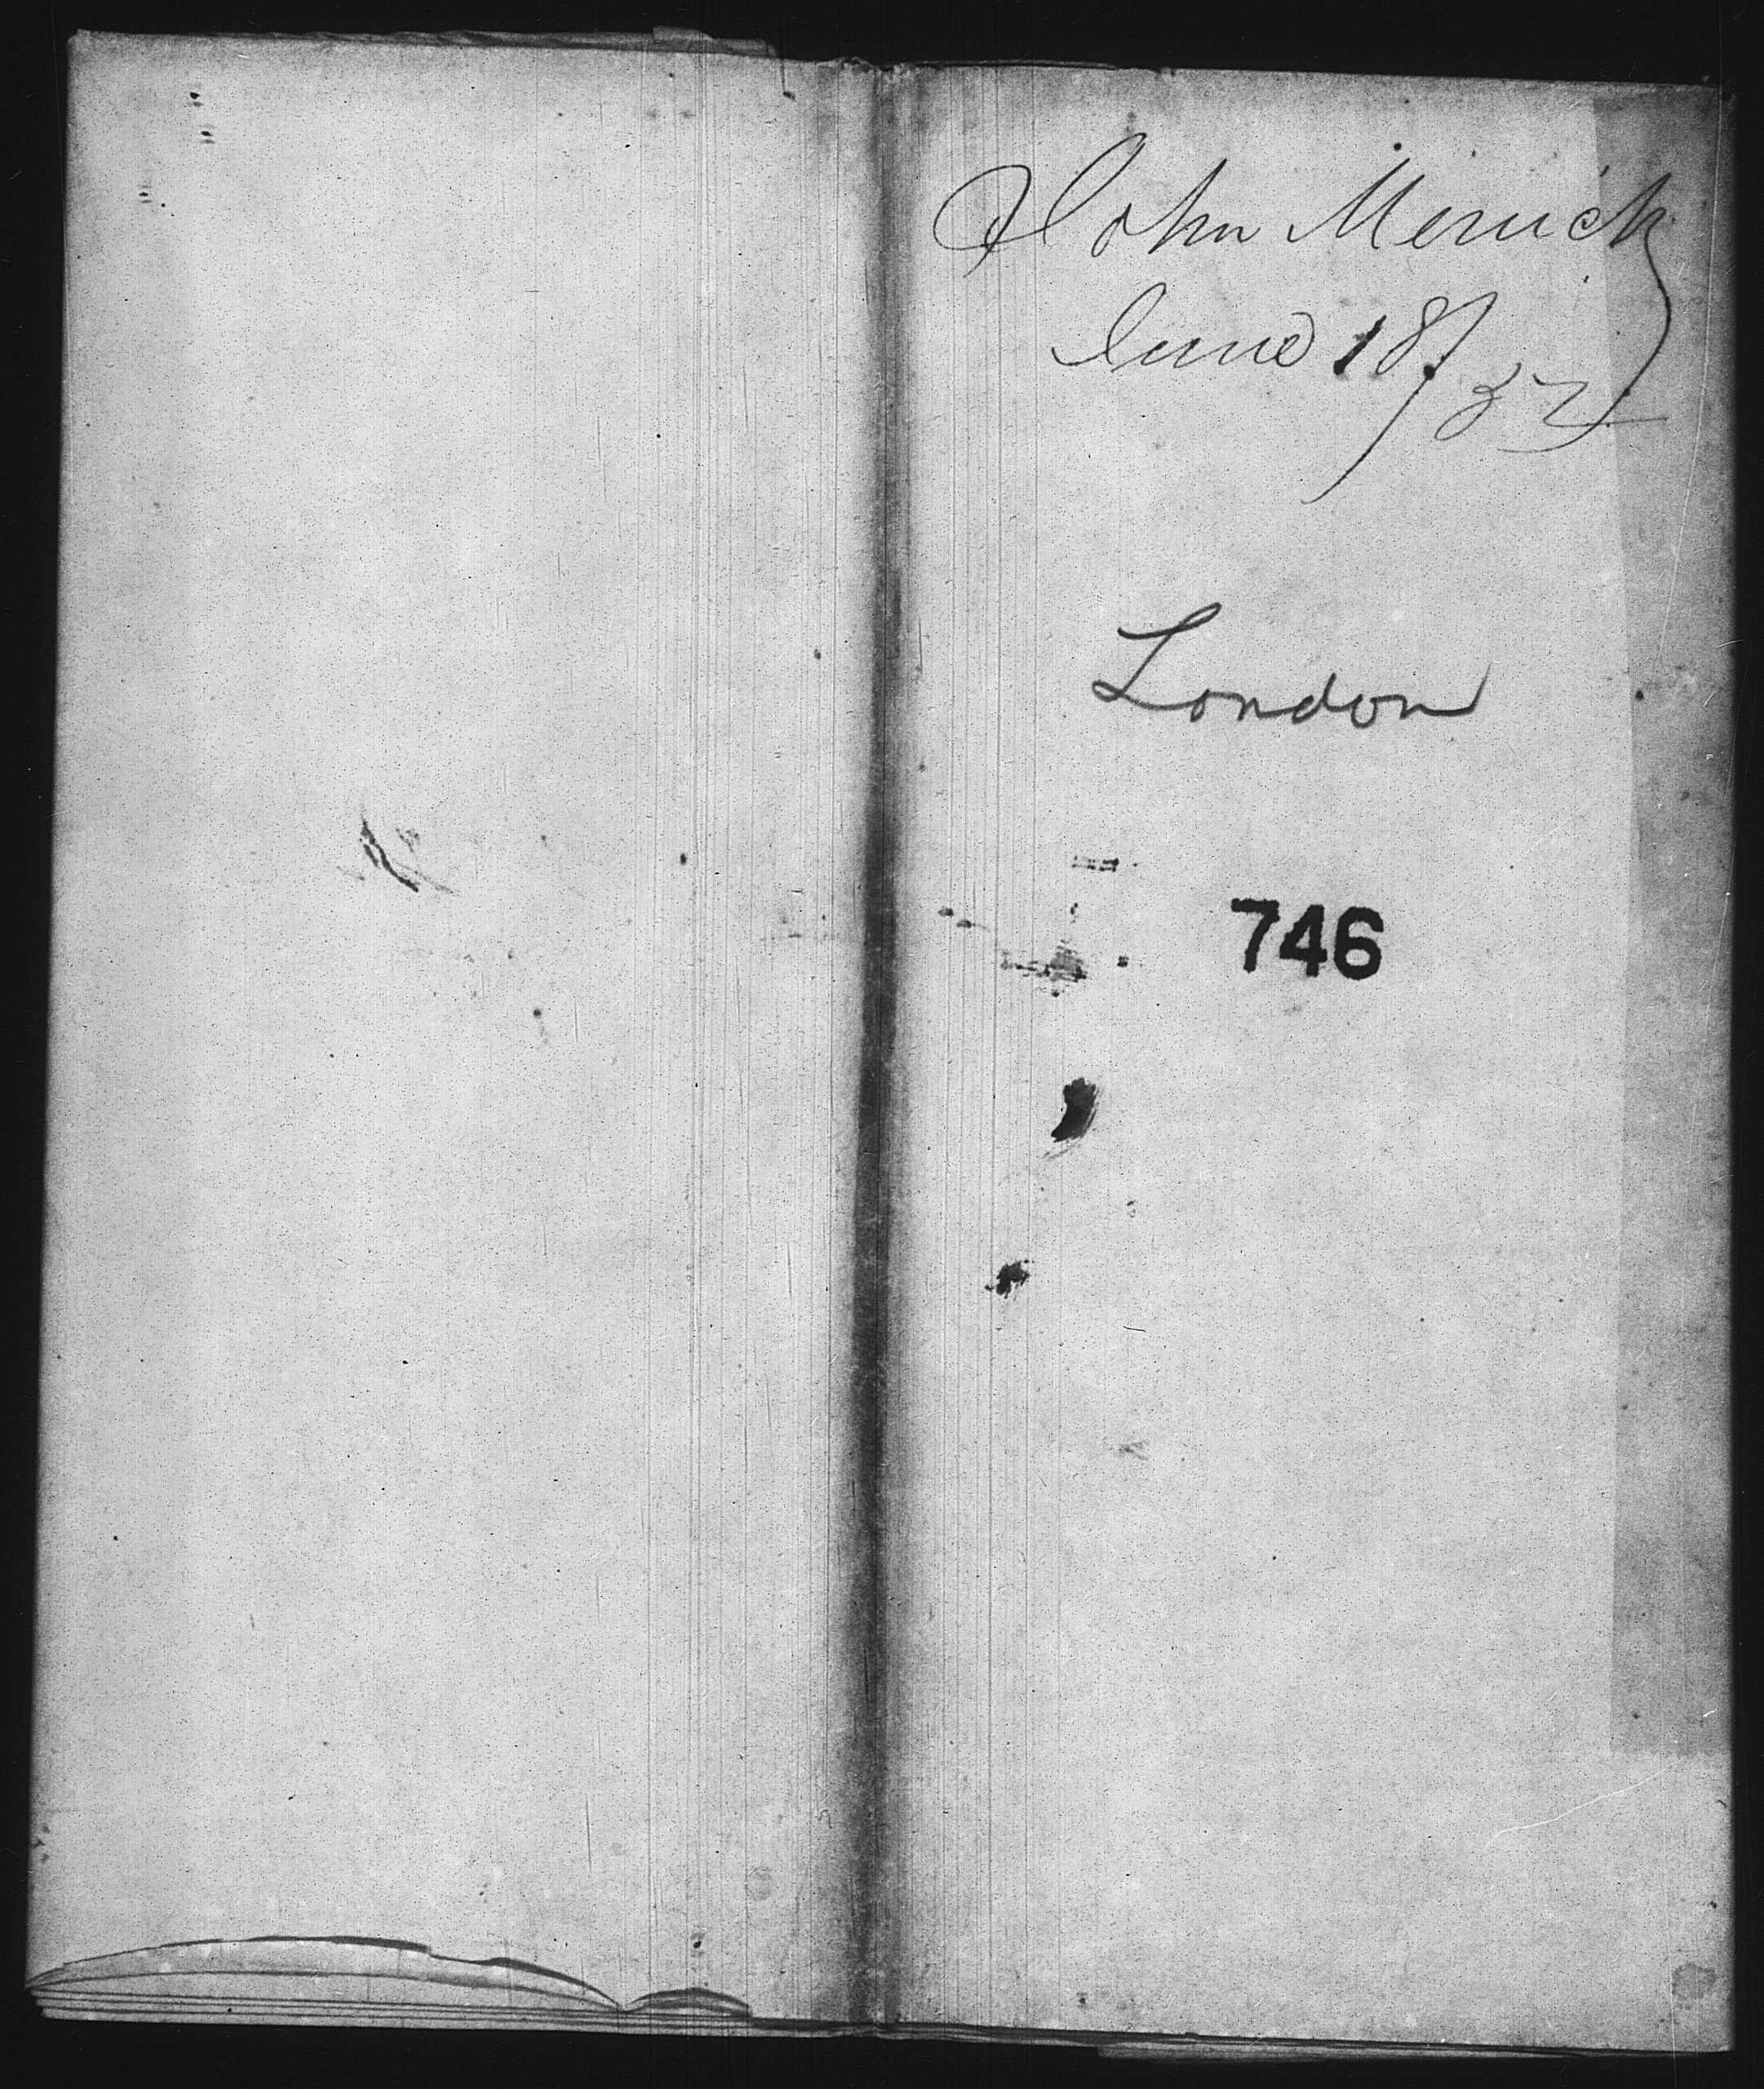 John Merrick
June 18/32
London
746